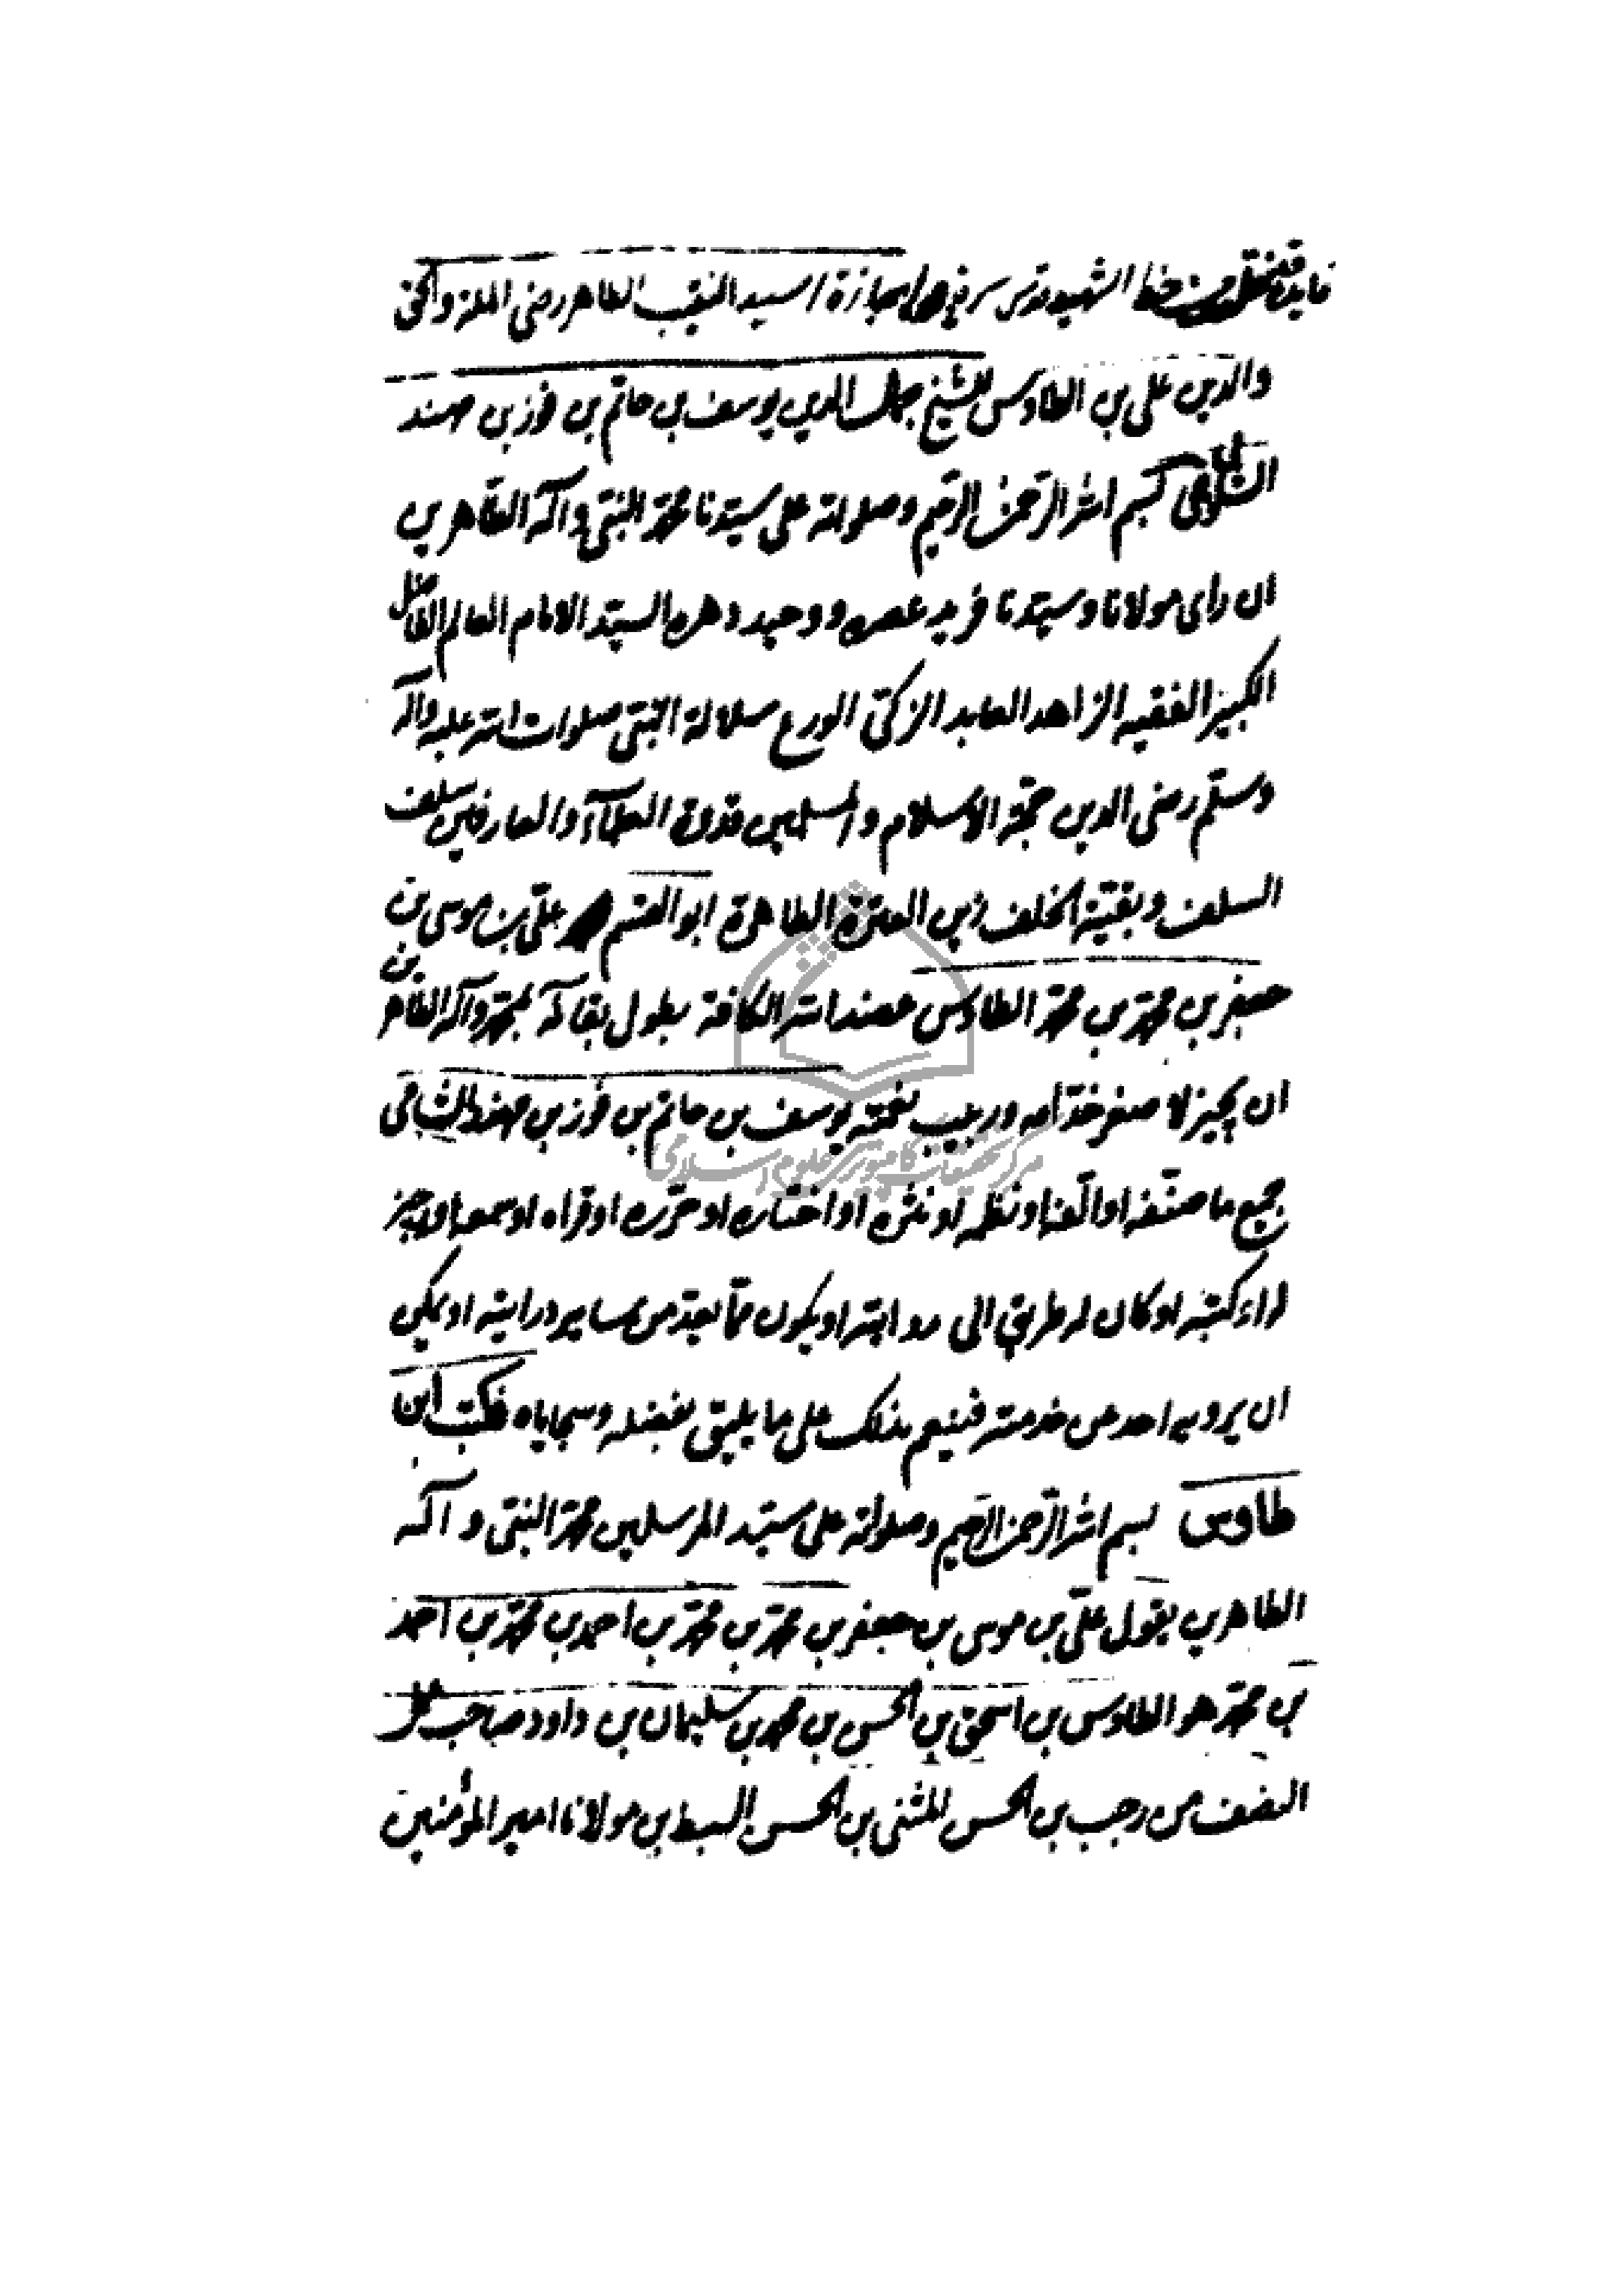 فايدة نقل من خط الشهيد قدس سره اجازة السيد النقيب الطاهر رضى الملة والحق
والدين على بن الطاوس للشيخ جمال الدين يوسف بن حاتم بن فوز بن مهند
الشامى بسم الله الرحمن الرحيم وصلواته على سيدنا محمد النبى وآله الطاهرين
ان راى مولانا وسيدنا فريد عصره ووحيد دهره السيد الامام العالم الفاضل
الكبير الفقيه الزاهد العابد الزكى الورع سلالة النبى صلوات الله عليه وآله
وسلم رضى الدين حجة الاسلام والمسلمين قدوة العلمآء والعارفين سلف
السلف وبقية الخلف زين العترة الطاهرة ابو القسم على بن موسى بن
جعفر بن محمد بن محمد الطاوس عضد الله الكافة بطول بقائه بمحمد وآله الطاهرين
ان يجيز لاصغر خدامه وربيب نعمته يوسف بن حاتم بن فوز بن مهند الشامى
جميع ما صنفه او الفه او نظمه او نثره او اختاره او حرره او قراه او سمعه او اجيز
له او كتبه او كان له طريق الى روايته او يكون مما يعد من ساير درايته او يمكن
ان يرويه احد عن خدمته فينعم بذلك على ما يليق بفضله وسجاياه فكتب ابن
طاوس بسم الله الرحمن الرحيم وصلواته على سيد المرسلين محمد النبى وآله
الطاهرين يقول على بن موسى بن جعفر بن محمد بن محمد بن احمد بن محمد بن احمد
بن محمد هو الطاوس بن اسحق بن الحسن بن محمد بن سليمان بن داود صاحب عمل
النصف من رجب بن الحسن المثنى بن الحسن السبط بن مولانا امير المؤمنين
مركز تحقيقات كامپيوترى علوم اسلامى